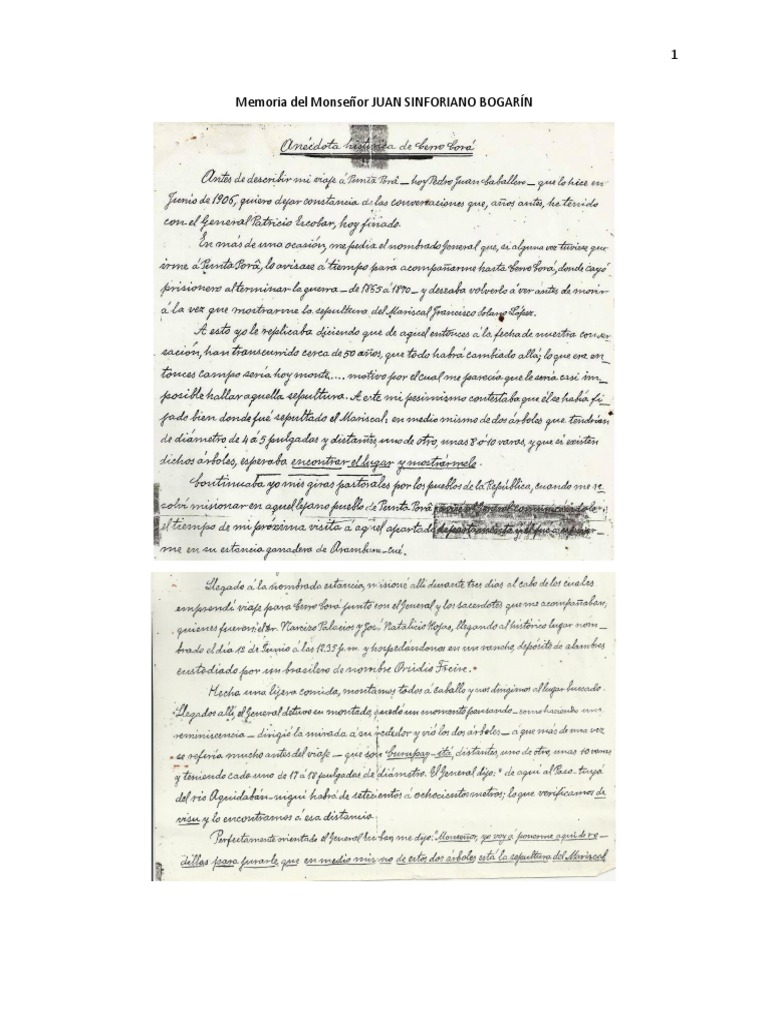 1
Memoria del Monseñor JUAN SINFORIANO BOGARÍN
Anécdota histórica de Cerro Corá
Antes de describir mi viaje á Punta Porá – hoy Pedro Juan Caballero – que lo hice en
Junio de 1906, quiero dejar constancia de las conversaciones que, años antes, he tenido
con el General Patricio Escobar, hoy finado.
En más de una ocasión, me pedía el nombrado General que, si alguna vez tuviese que
irme á Punta Porâ, lo avisase á tiempo para acompañarme hasta Cerro Corá, donde cayó
prisionero al terminar la guerra – de 1865 á 1870 – y deseaba volverlo á ver antes de morir
á la vez que mostrarme la sepultura del Mariscal Francisco Solano López.
A esto yo le replicaba diciendo que de aquel entonces á la fecha de nuestra conver-
sación, han transcurrido cerca de 50 años, que todo habrá cambiado allá; lo que era en-
tonces campo sería hoy monte.... motivo por el cual me parecía que le sería casi im-
posible hallar aquella sepultura. A este mi pesimismo contestaba que él se había fi-
jado bien donde fué sepultado el Mariscal: en medio mismo de dos árboles que tendrían
de diámetro de 4 á 5 pulgadas y distantes, uno de otro, unas 8 ó 10 varas, y que si existen
dichos árboles, esperaba encontrar el lugar y mostrármelo.
Continuaba yo mis giras pastorales por los pueblos de la República, cuando me re-
solví misionar en aquel lejano pueblo de Punta Porâ
el tiempo de mi próxima visita á aquel apartado
me en su estancia ganadera de Aramburu-cué.
Llegado á la nombrada estancia, misioné allí durante tres dias al cabo de los cuales
emprendí viaje para Cerro Corá junto con el General y los sacerdotes que me acompañaban,
quienes fueron: el Sr. Narcizo Palacios y José Natalicio Rojas, llegando al histórico lugar nom-
brado el día 12 de Junio á las 12.35 p.m. y hospedándonos en un rancho, depósito de alambres
custodiado por un brasilero de nombre Ovidio Freire.
Hecha una lijera comida, montamos todos á caballo y nos dirigimos al lugar buscado.
Llegados allí, el General detuvo en montado, quedó un momento pensando – como haciendo una
reminiscencia – dirigió la mirada a su rededor y vió los dos árboles – a que más de una vez
se refería mucho antes del viaje – que son Curupay-itá, distantes, uno de otro, unas 10 varas
y teniendo cada uno de 17 á 18 pulgadas de diámetro. El General dijo: "de aquí al Paso-tuyá
del río Aquidabán-niguí habrá de setecientos á ochocientos metros; lo que verificamos de
visu y lo encontramos á esa distancia.
Perfectamente orientado el General Escobar, me dijo: "Monseñor, yo voy á ponerme aquí de ro-
dillas para jurarle que en medio mismo de estos dos árboles está la sepultura del Mariscal